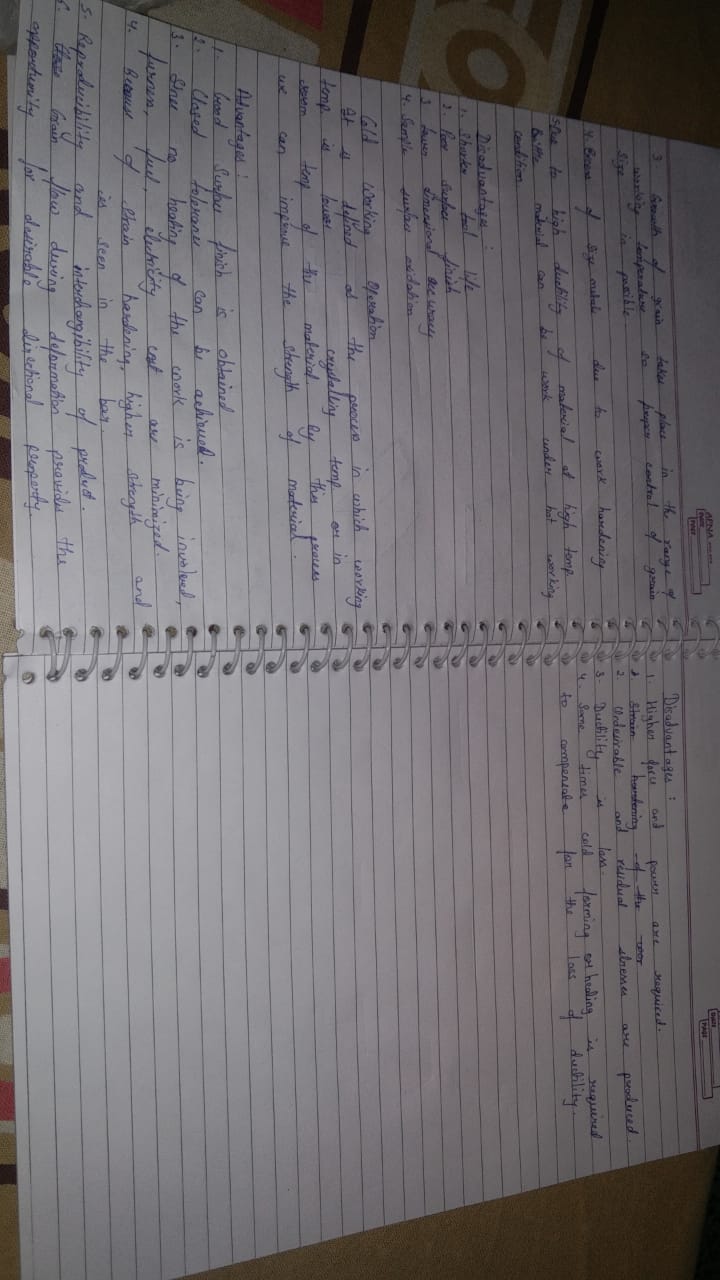 APNA
DATE
PAGE
3. Growth of grain takes place in the range of
working temperature so proper control of grain
size in posible.
4. Brass of size metals due to work hardening
5. Due to high ductility of material at high temp
Brittle material can be work under hot working
condition
Disadvantages :
1. Shorter tool life
2. Poor surface finish
3 Lower dimensional accuracy
4. Sample surface oxidation
Cold Working Operation
It is defined at the process in which working
temp is lower crystalling temp or in
room temp of the material by this process
we can improve the strength of material.
Advantages :
1. Good surface finish is obtained
2. Closed tolerance can be achieved.
3. Since no heating of the work is being involved,
furnace, fuel, electricity cost are minimized.
4. Because of strain hardening, higher strength and
is seen in the bar.
5. Reproducibility and interchangibility of product.
6. Grain flow during deformation provides the
opportunity for desirable directional property.
DATE
PAGE
Disadvantages :
1. Higher force and power are required.
2 Strain hardening of the
2. Undesirable and residual stresses are produced
3. Ductility is loss.
4. Some times cold forming or heating is required
to compensate for the loss of ductility.